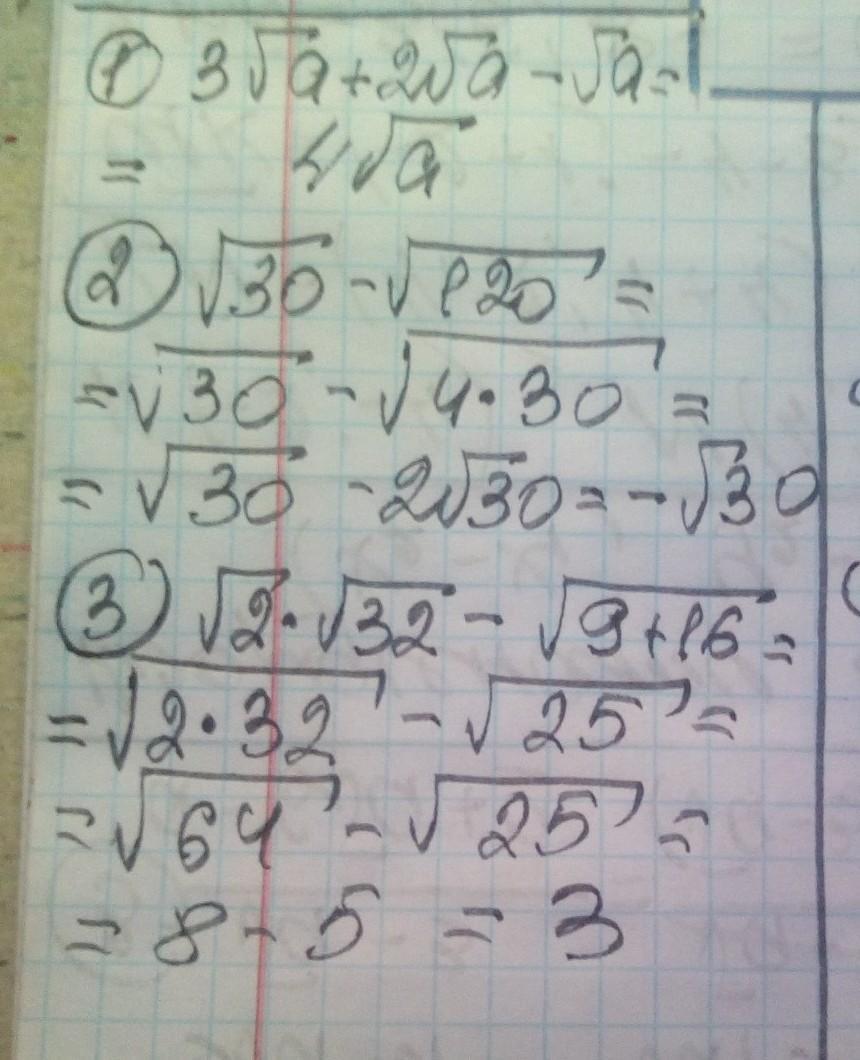 ① 3√a + 2√a - √a =
= 4√a
② √30 - √120 =
= √30 - √4·30 =
= √30 - 2√30 = -√30
③ √2·√32 - √9+16 =
= √2·32 - √25 =
= √64 - √25 =
= 8 - 5 = 3